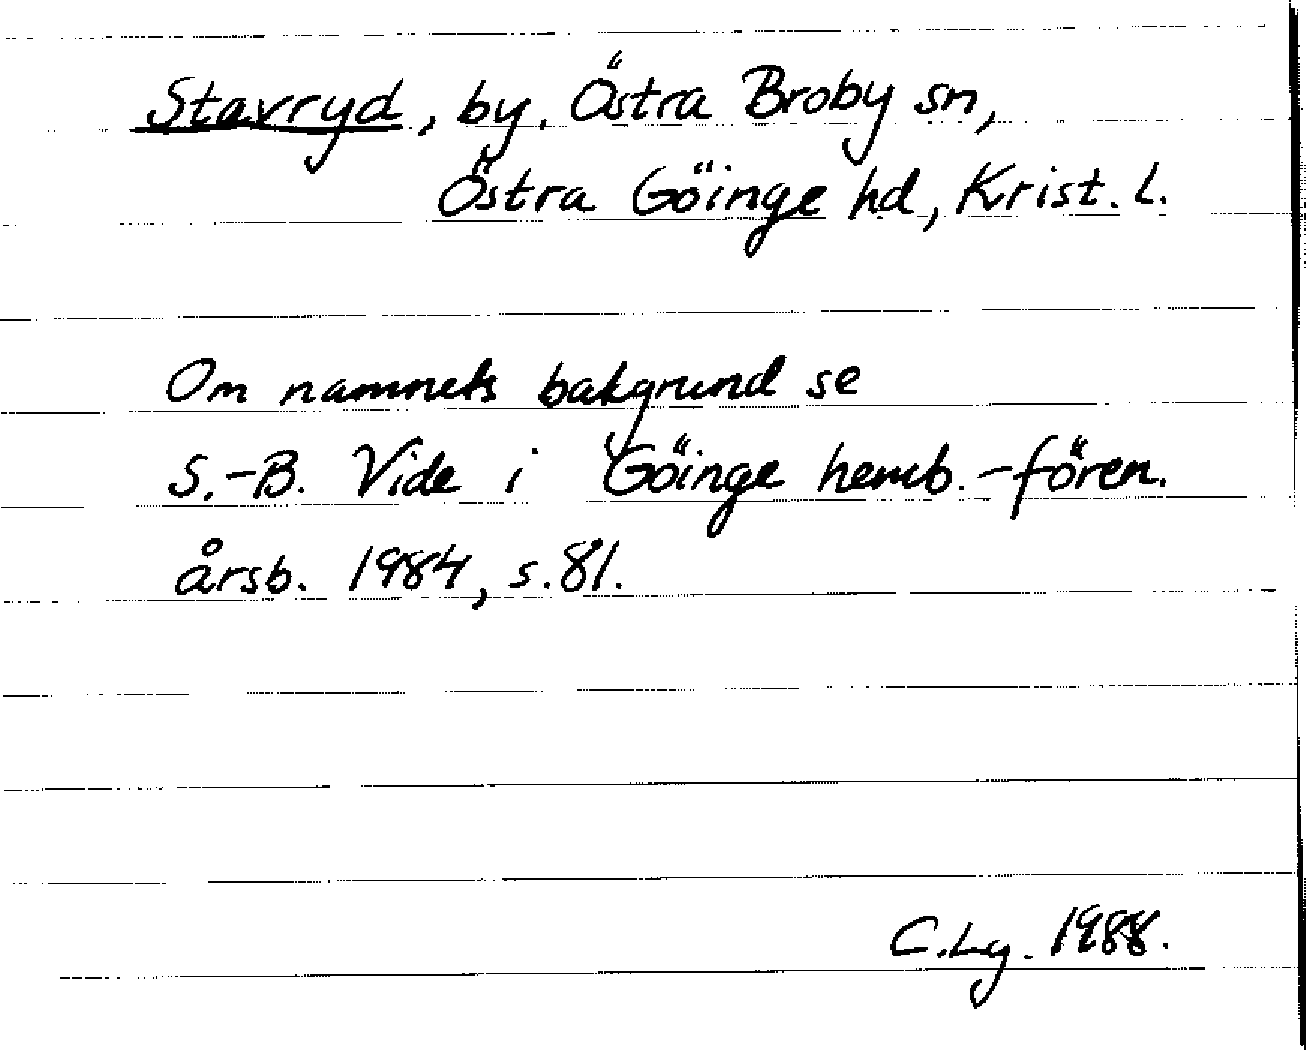 Stavryd, by. Östra Broby sn,
Östra Göinge hd, Krist. L.
Om namnets bakgrund se
S.-B. Vide i Göinge hemb.-fören.
årsb. 1984, s.81.
C.Lg. 1988.